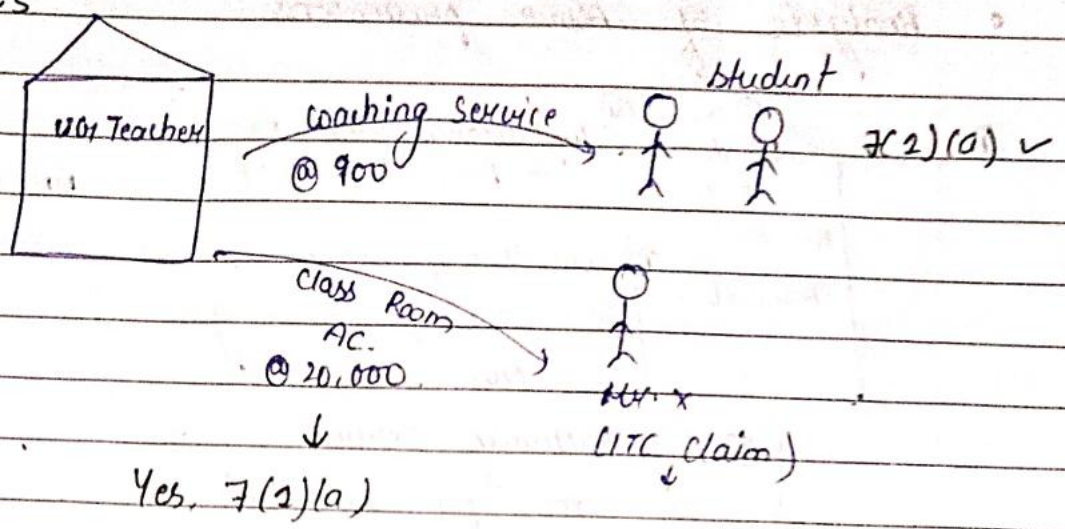 Student
Teacher
Coaching Service
@ 900
7(1)(a) ✓
Class Room
AC.
@ 20,000
Mr. X
(ITC Claim)
↓
↓
Yes, 7(1)(a)